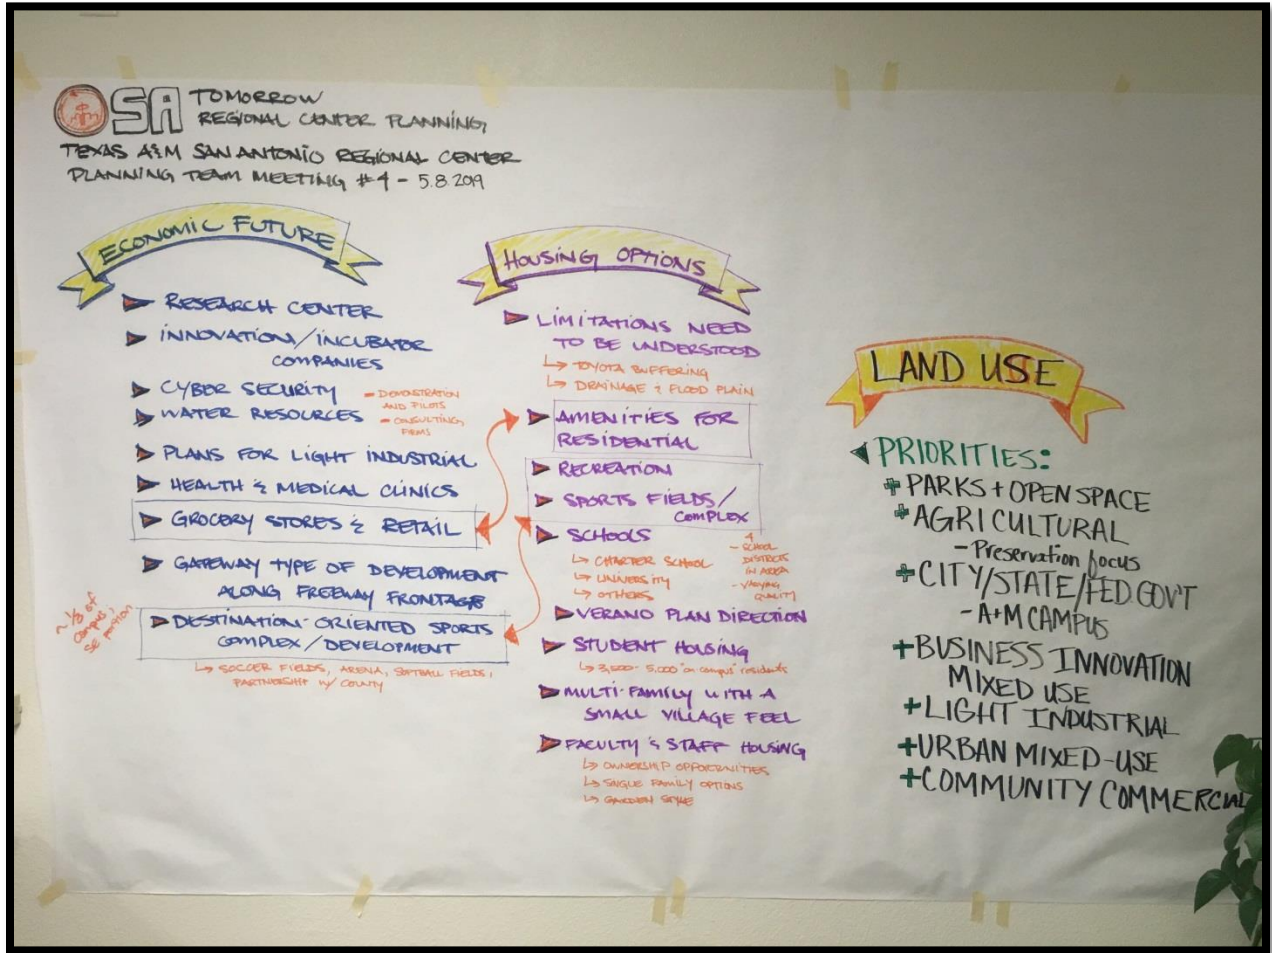 SA TOMORROW
REGIONAL CENTER PLANNING
TEXAS A&M SAN ANTONIO REGIONAL CENTER
PLANNING TEAM MEETING #4 - 5.8.2019
ECONOMIC FUTURE
RESEARCH CENTER
INNOVATION/INCUBATOR
COMPANIES
CYBER SECURITY
WATER RESOURCES
- DEMONSTRATION
AND PILOTS
- CONSULTING
FIRMS
PLANS FOR LIGHT INDUSTRIAL
HEALTH & MEDICAL CLINICS
GROCERY STORES & RETAIL
GATEWAY TYPE OF DEVELOPMENT
ALONG FREEWAY FRONTAGE
~ 1/3 of
campus,
SE portion
DESTINATION-ORIENTED SPORTS
COMPLEX/DEVELOPMENT
↳ SOCCER FIELDS, ARENA, SOFTBALL FIELDS,
PARTNERSHIP W/ COUNTY
HOUSING OPTIONS
LIMITATIONS NEED
TO BE UNDERSTOOD
↳ TOYOTA BUFFERING
↳ DRAINAGE & FLOOD PLAIN
AMENITIES FOR
RESIDENTIAL
RECREATION
SPORTS FIELDS/
COMPLEX
SCHOOLS
↳ CHARTER SCHOOL
↳ UNIVERSITY
↳ OTHERS
4
- SCHOOL
DISTRICTS
IN AREA
- VARYING
QUALITY
VERANO PLAN DIRECTION
STUDENT HOUSING
↳ 3,500 - 5,000 "on campus" residents
MULTI-FAMILY WITH A
SMALL VILLAGE FEEL
FACULTY & STAFF HOUSING
↳ OWNERSHIP OPPORTUNITIES
↳ SINGLE FAMILY OPTIONS
↳ GARDEN STYLE
LAND USE
PRIORITIES:
+ PARKS + OPEN SPACE
+ AGRICULTURAL
- Preservation focus
+ CITY/STATE/FED GOV'T
- A+M CAMPUS
+ BUSINESS INNOVATION
MIXED USE
+ LIGHT INDUSTRIAL
+ URBAN MIXED-USE
+ COMMUNITY COMMERCIAL